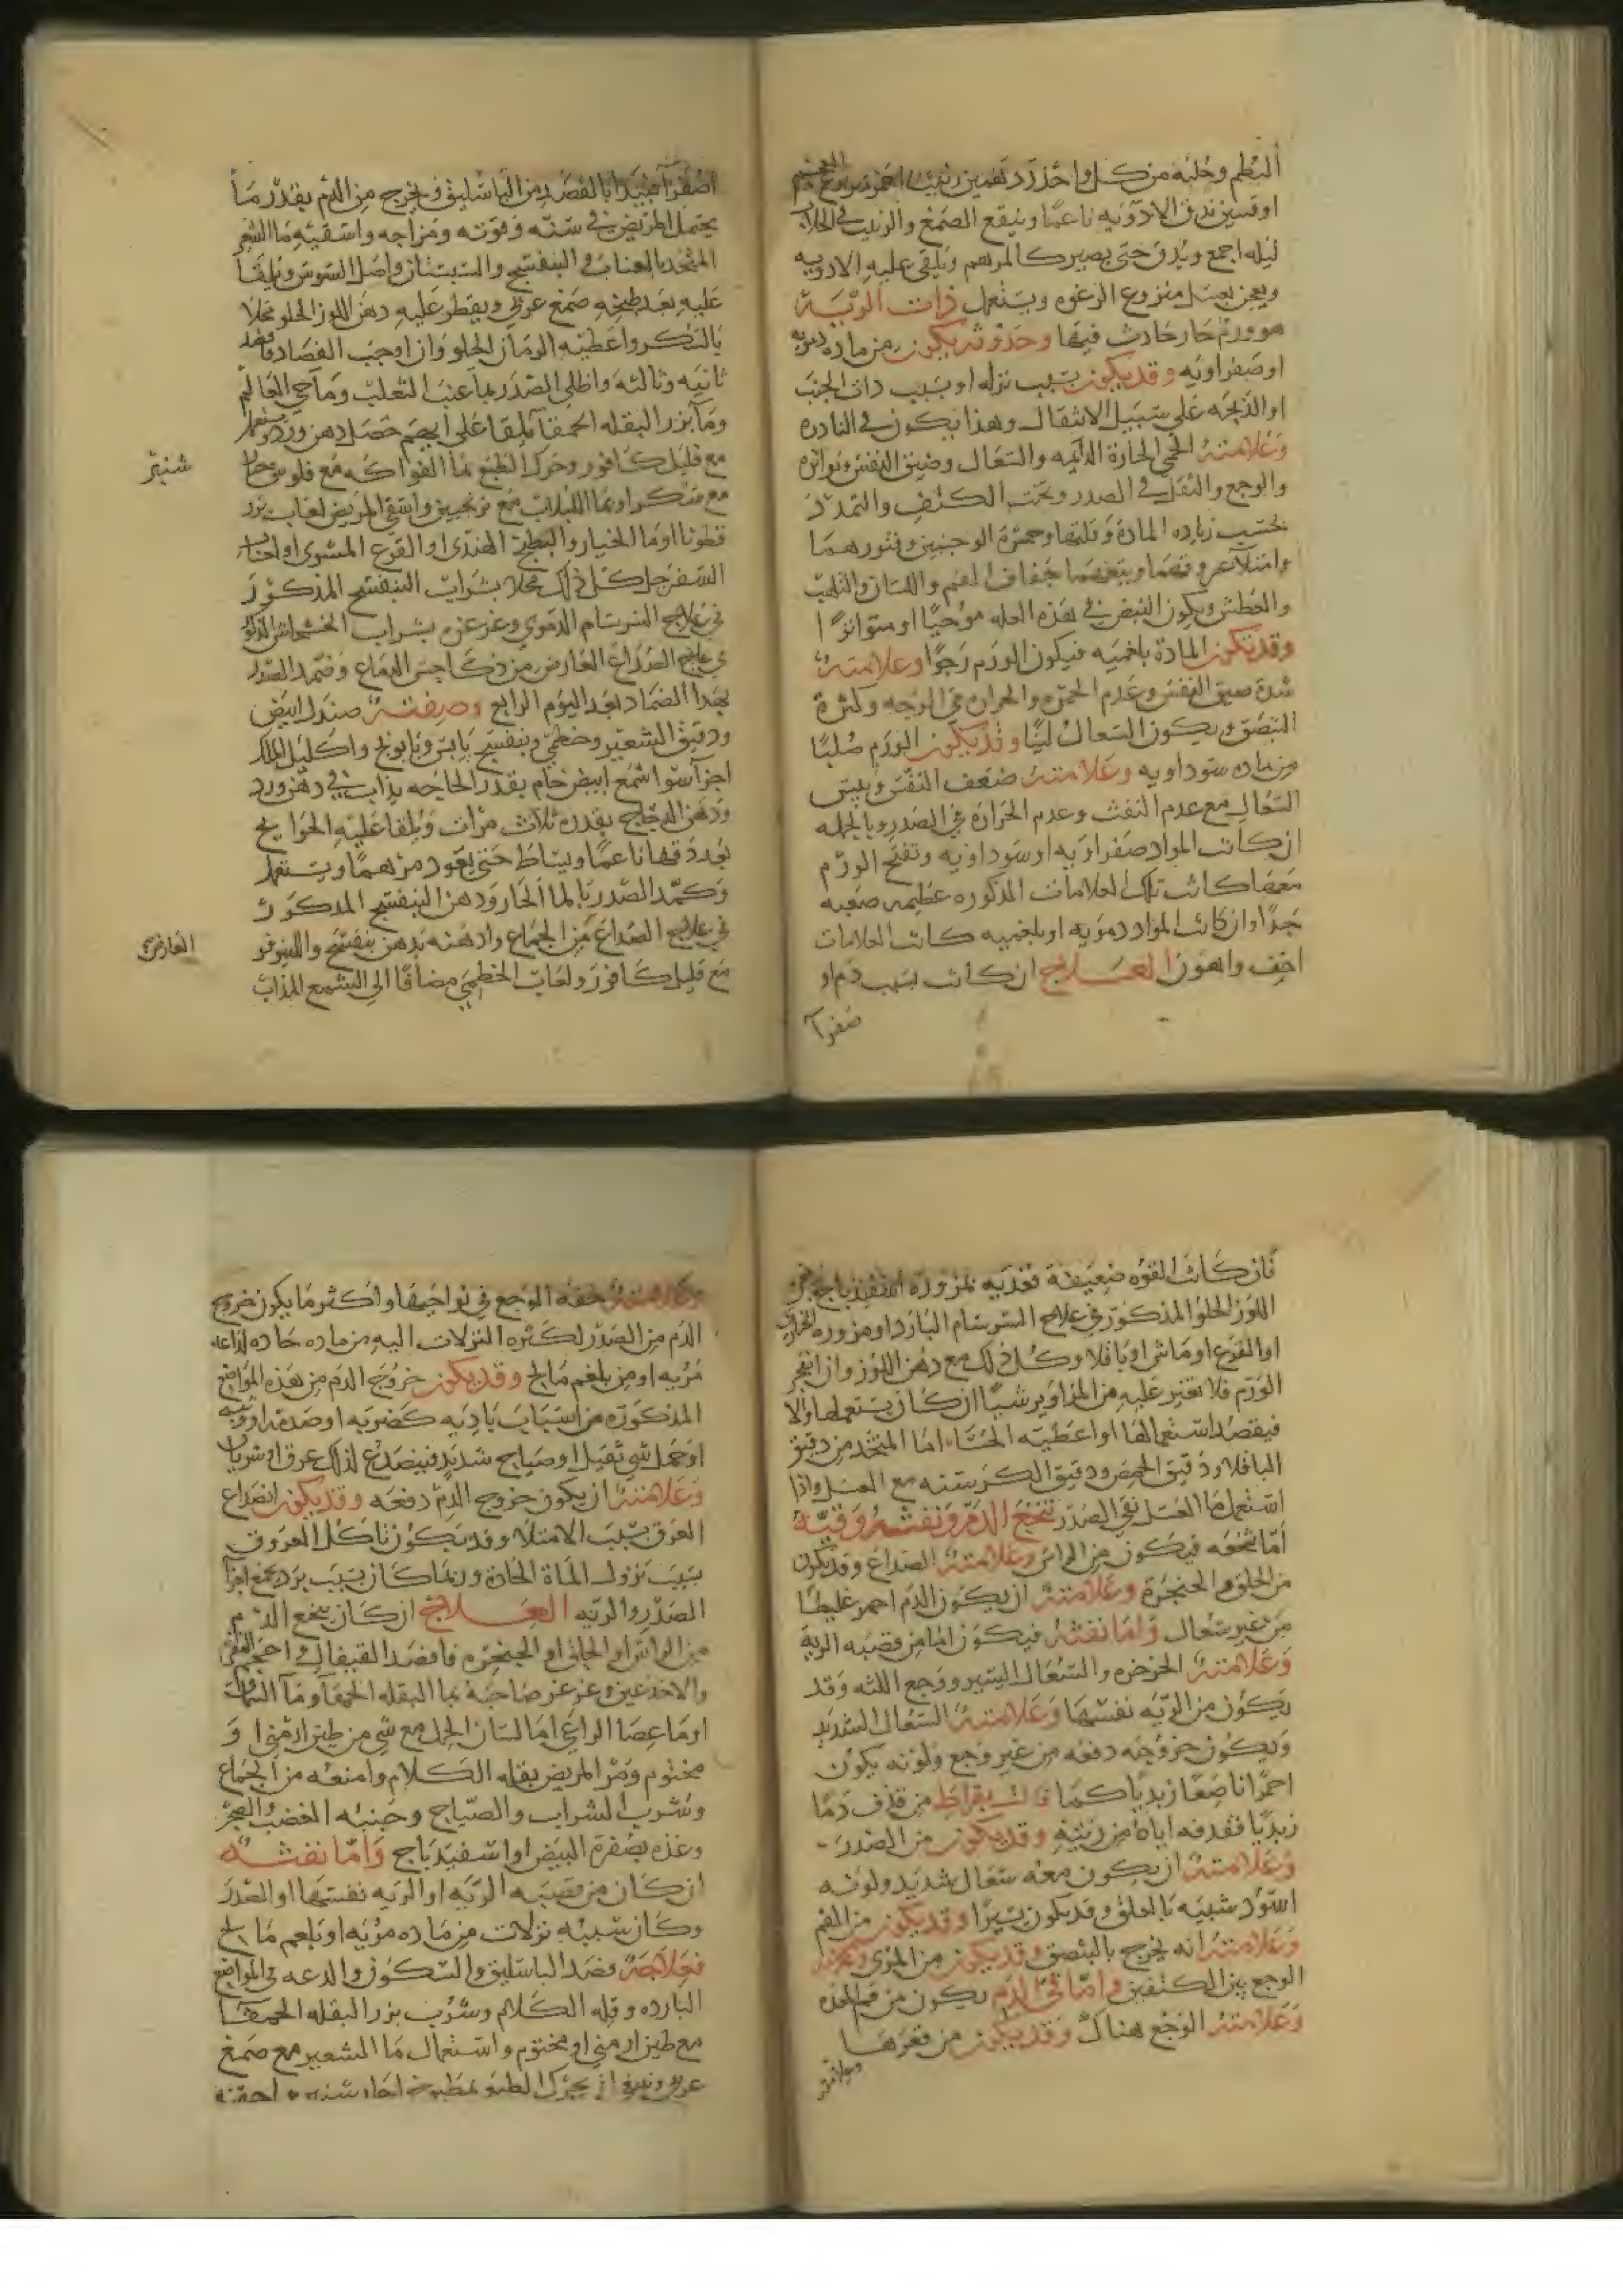 البطم وحلبه من كل واحد درهمين زبيب احمر منزوع العجم
اوقيتين تدق الادويه ناعما وينقع الصمغ والزبيب في الجلاب
ليله اجمع ويدق حتى يصير كالمرهم ويلقى عليه الادويه
ويعجن بعسل منزوع الرغوه ويستعمل ذات الريـة
هو ورم حار حادث فيها وحدوثه يكون من ماده دمويه
او صفراويه وقد يكون بسبب نزله او بسبب ذات الجنب
او الذبحه على سبيل الانتقال وهذا يكون في النادره
وعلامته الحمى الحارة الدايمه والسعال وضيق النفس وتواتره
والوجع والثقل في الصدر وتحت الكتف والتمدد
بحسب زياده المادة وقلتها وحمرة الوجنتين وفتورهما
وامتلا عروقهما ويتبعهما جفاف الفم واللسان والتلهب
والعطش ويكون النبض في هذه العله موجيا او متواترا
وقد تكون المادة بلغميه فيكون الورم رخوا وعلامته
شدة ضيق النفس وعدم الحمرة والحراره في الوجه وكثرة
التبصق ويكون السعال لينا وقد يكون الورم صلبا
من ماده سوداويه وعلامته ضعف النفس ويبس
السعال مع عدم النفث وعدم الحرارة في الصدر وبالجمله
ان كانت المواد صفراويه او سوداويه وتفتح الورم
معها كانت تلك العلامات المذكوره عظيمه صعبه
جدا وان كانت المواد دمويه او بلغميه كانت العلامات
اخف واهون العـــلاج ان كانت بسبب دم او
صفرآ
اصفرآ فيبدا بالفصد من الباسليق ويخرج من الدم بقدر ما
يحتمل المريض في سنه وقوته ومزاجه واسقيه ما الشعير
المتخد بالعناب والبنفسج والسبستان واصل السوس ويلقا
عليه بعد طبخه صمغ عربي ويقطر عليه دهن اللوز الحلو محلا
بالسكر واعطيه الرمان الحلو وان اوجب الفصاد فافصد
ثانيه وثالثه واطلي الصدر بمآ عنب الثعلب ومآ حي العالم
ومآ بزر البقله الحمقآ يلقا على ايهم حضل دهن ورد ويستعمل
مع قليل كافور وحرك الطبع بما الفواكه مع فلوس خيار
شنبر
مع سكر او بما اللبلاب مع ترنجبين واسقي المريض لعاب بزر
قطونا او ما الخيار والبطيخ الهندى او القرع المشوى او لعاب
السفرجل كل ذلك محلا بشراب البنفسج المذكور
في علاج السرسام الدموي وغرغره بشراب الخشخاش المذكور
في علاج الصداع العارض من ذكا حس الدماغ وضمد الصدر
بهذا الضماد بعد اليوم الرابع وصفته صندل ابيض
ودقيق الشعير وخطمي وبنفسج يابس وبابونج واكليل الملك
اجزآ سوا شمع ابيض خام بقدر الحاجه يذاب في دهن ورد
ودهن البنفسج بقدره ثلاث مرات ويلقا عليه الحوايج
بعد دقها ناعما ويساط حتى يعود مرهما ويستعمل
وكمد الصدر بالما الحار ودهن البنفسج المذكور
في علاج الصداع من الجماع وادهنه بدهن بنفسج واللينوفر
العارض
مع قليل كافور ولعاب الخطمي مضافا الى الشمع المذاب
فان كانت القوه ضعيفة فغذيه بمزورة الاسفيدباج بدهن
اللوز الحلو المذكور في علاج السرسام البارد او مزوره الخبازي
او القرع او ماش او باقلا وكل ذلك مع دهن اللوز وان انفجر
الورم فلا تغير عليه من المزاوير شيا ان كان يستعملها والا
فيقصد استعمالها او اعطيه الحسا اما المتخد من دقيق
الباقلا ودقيق الحمص ودقيق الكرسنه مع العسل واذا
استعمل ما العسل نقي الصدر تنخع الدم ونفثه وقيه
اما تنخعه فيكون من الراس وعلامته الصداع وقد يكون
من الحلق والحنجرة وعلامته ان يكون الدم احمر غليظا
من غير سعال واما نفثه فيكون اما من قصبه الرية
وعلامته الخرخره والسعال اليسير ووجع اللثه وقد
يكون من الريه نفسها وعلامته السعال الشديد
ويكون خروجه دفعه من غير وجع ولونه يكون
احمرا ناصعا زبديا كما قالت بقراط من قذف دما
زبديا فقذفه اياه من ريته وقد يكون من الصدر
وعلامته ان يكون معه سعال شديد ولونه
اسود شبيه بالعلق وقد يكون يسيرا وقد يكون من الفم
وعلامته انه يخرج بالتبصق وقد يكون من المرى وعلامته
الوجع بين الكتفين واما قي الدم يكون من فم المعده
وعلامته الوجع هناك وقد يكون من قعرها
وعلامته
وعلامته خفه الوجع في نواحيها واكثر ما يكون خروج
الدم من الصدر لكثره النزلات اليه من ماده حاده لذاعه
مريه او من بلغم مالح وقد يكون خروج الدم من هذه المواضع
المذكوره من اسباب باديه كضربه او صدمه او وثبه
او حمل شي ثقيل او صياح شديد فينصدع لذلك عرق او شريان
وعلامته ان يكون خروج الدم دفعه وقد يكون انصداع
العرق بسبب الامتلا وقد يكون تاكل العروق
بسبب نزول المادة الحادة وربما كان بسبب برد يجمع اجزآ
الصدر والريه العــــلاج ان كان تنخع الدم
من الراس او الحلق او الحنجره فافصد القيفال او احجم النقره
والاخدعين وغرغر صاحبه بما البقله الحمقآ ومآ السماق
او ما عصا الراعي او ما لسان الحمل مع شي من طين ارمني او
مختوم ومر المريض بقله الكلام وامنعه من الجماع
وشرب الشراب والصياح وجنبه الغضب والضجر
وغذه بصفرة البيض او اسفيدباج واما نفثـــه
ان كان من قصبه الريه او الريه نفسها او الصدر
وكان سببه نزلات من ماده مريه او بلغم مالح
فعلاجه فصد الباسليق والسكون والدعه في المواضع
البارده وقله الكلام وشرب بزر البقله الحمقـا
مع طين ارمني او مختوم واستعمال ما الشعير مع صمغ
عربي وينبغي ان يحرك الطبع بمطبوخ الخيار شنبر او احقنه